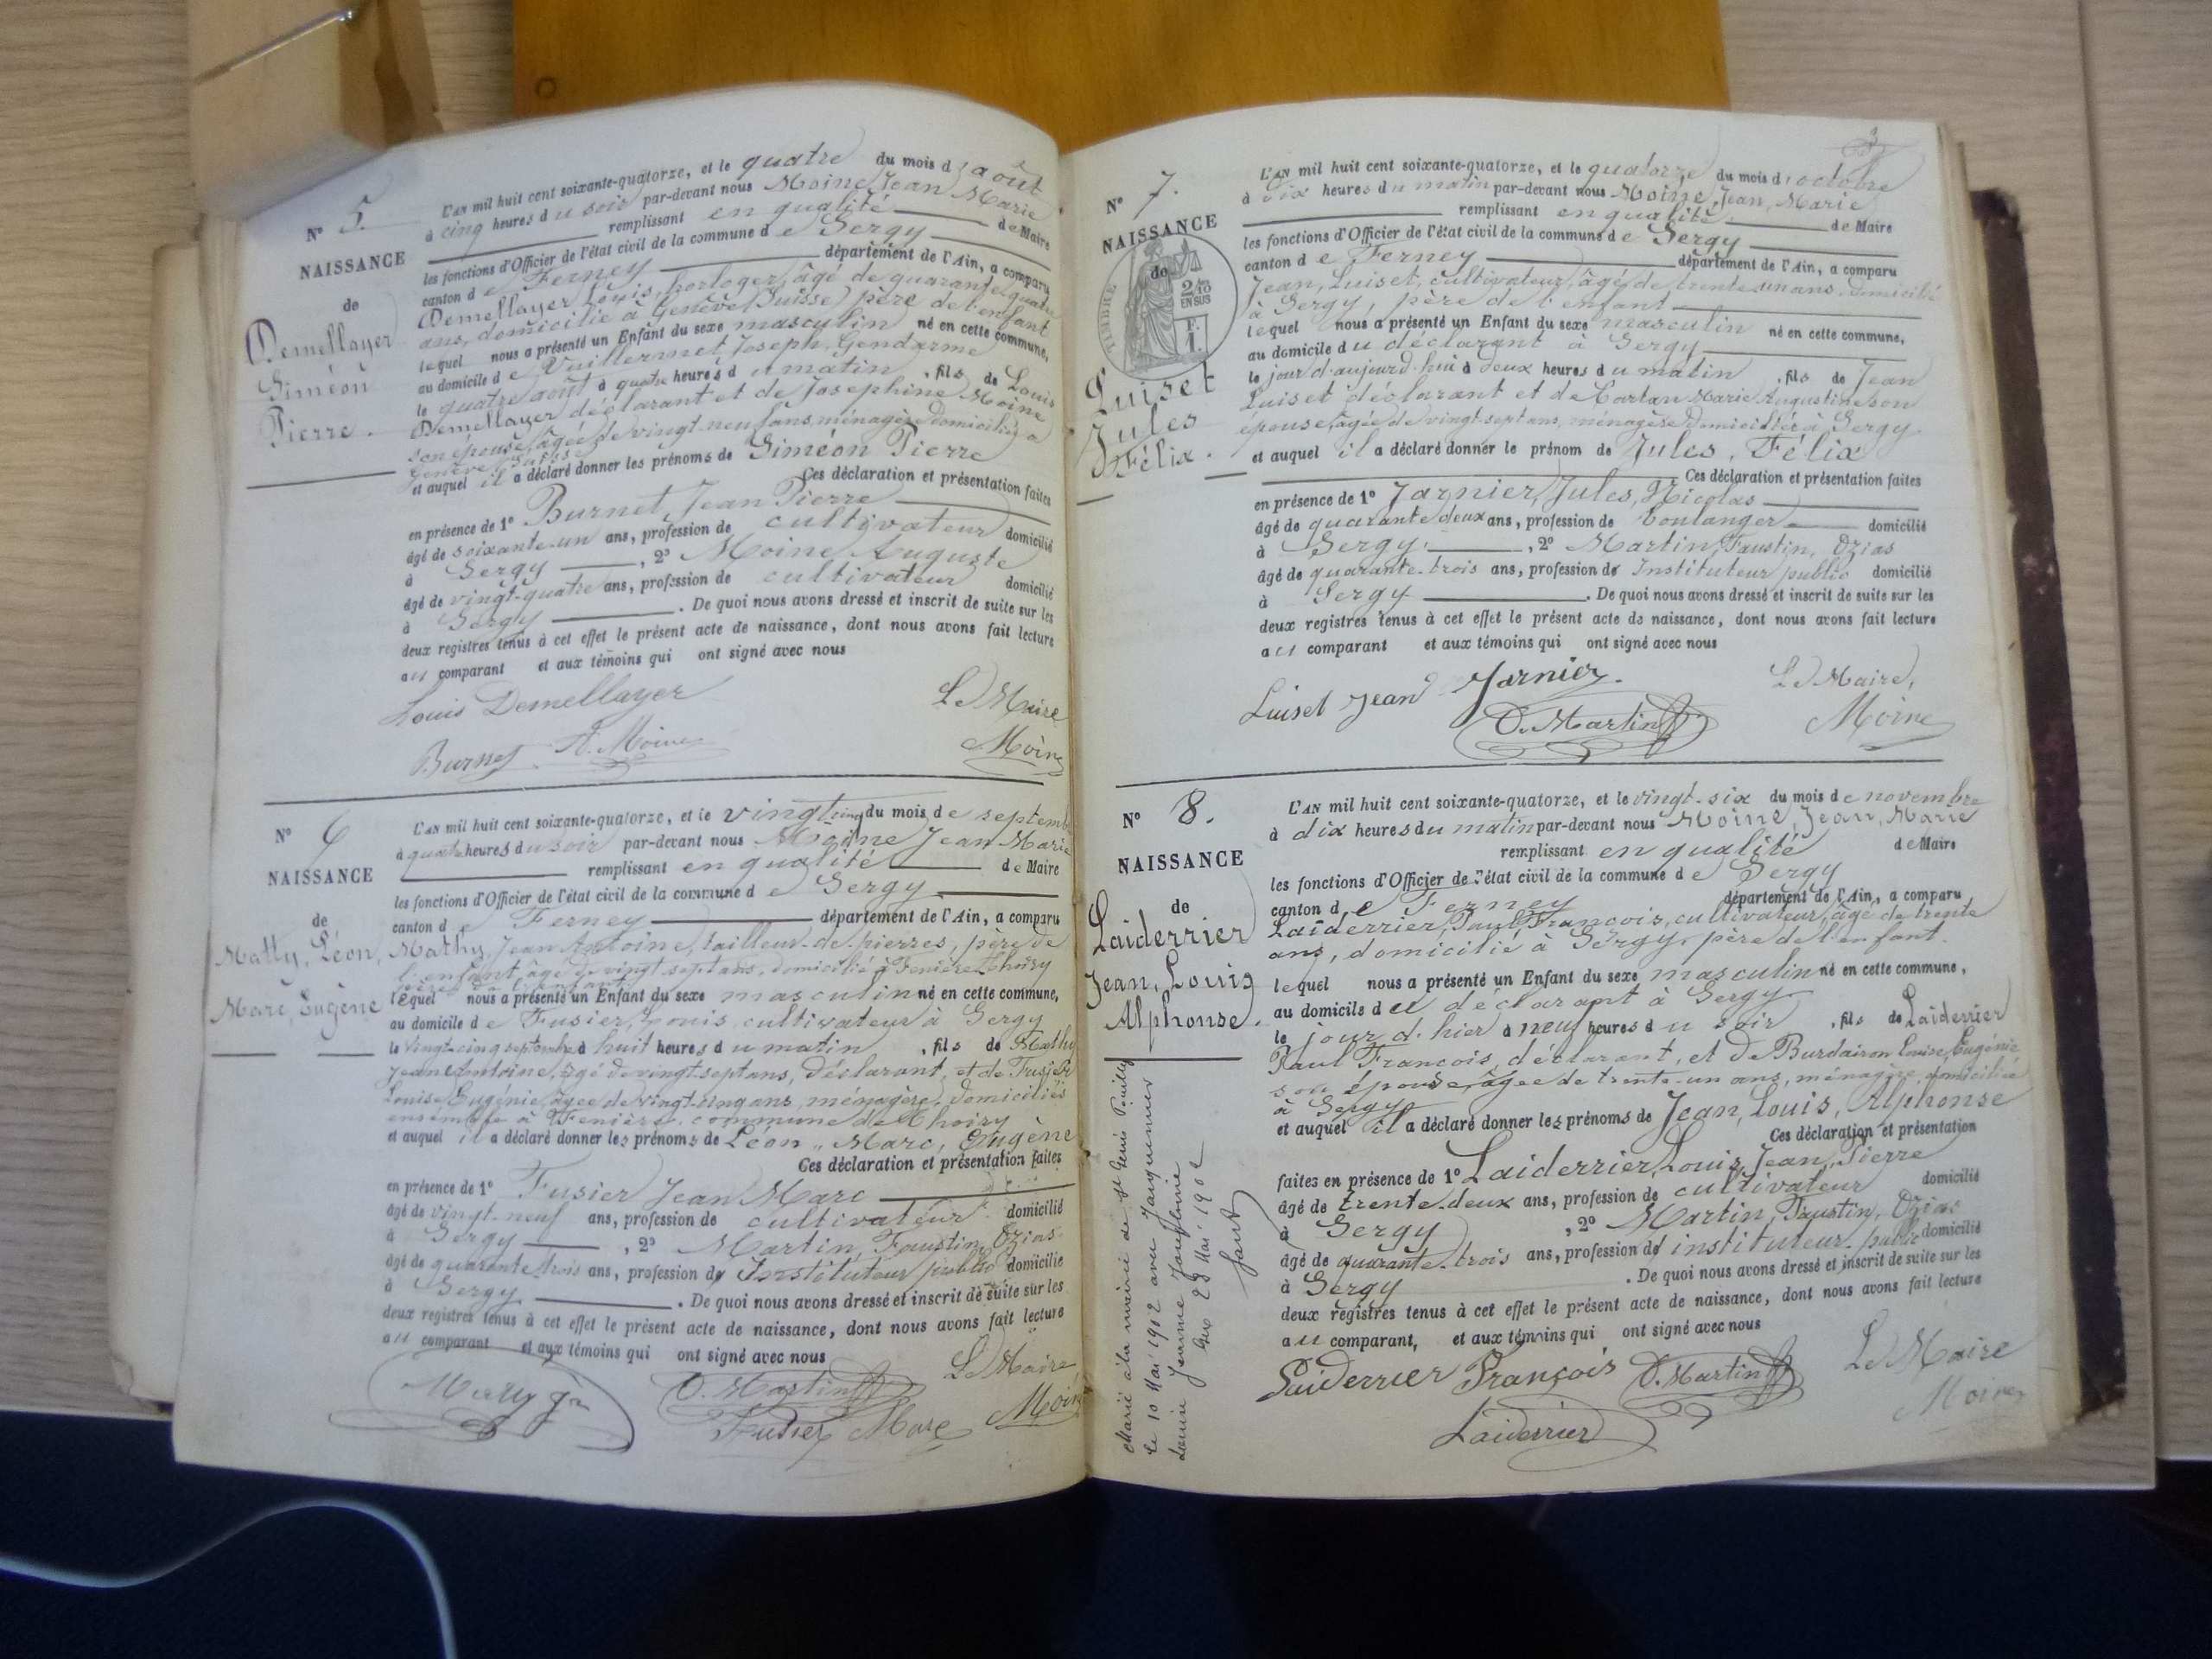 N° 5.
NAISSANCE
de
Demellayer
Siméon
Pierre.
L'AN mil huit cent soixante-quatorze, et le quatre du mois d'août
à cinq heures du soir par-devant nous Moine Jean Marie
remplissant en qualité de Maire
les fonctions d'Officier de l'état civil de la commune de Sergy
canton de Ferney département de l'Ain, a comparu
Demellayer Louis, horloger, âgé de quarante quatre
ans, domicilié à Genève (Suisse) père de l'enfant
lequel nous a présenté un Enfant du sexe masculin né en cette commune,
au domicile de Vuillermet Joseph, Gendarme
le quatre août à quatre heures du matin, fils de Louis
Demellayer déclarant et de Josephine Moine
son épouse, âgée de vingt-neuf ans, ménagère domiciliés à
Genève, Suisse
et auquel il a déclaré donner les prénoms de Siméon Pierre
Ces déclaration et présentation faites
en présence de 1° Burnet, Jean Pierre
âgé de soixante-un ans, profession de cultivateur domicilié
à Sergy, 2° Moine Auguste
âgé de vingt-quatre ans, profession de cultivateur domicilié
à Sergy. De quoi nous avons dressé et inscrit de suite sur les
deux registres tenus à cet effet le présent acte de naissance, dont nous avons fait lecture
au comparant et aux témoins qui ont signé avec nous
Louis Demellayer Le Maire
Burnet A. Moine Moine
N° 6
NAISSANCE
de
Matty, Léon,
Marc, Eugène
L'AN mil huit cent soixante-quatorze, et le vingt cinq du mois de septemb
à quatre heures du soir par-devant nous Moine Jean Marie
remplissant en qualité de Maire
les fonctions d'Officier de l'état civil de la commune de Sergy
canton de Ferney département de l'Ain, a comparu
Mathy, Jean Antoine, tailleur-de-pierres, père de
l'enfant, âgé de vingt-sept ans, domicilié à Fenière Thoiry
lequel nous a présenté un Enfant du sexe masculin né en cette commune,
au domicile de Fusier, Louis, cultivateur à Sergy
le vingt-cinq septembre à huit heures du matin, fils de Mathy
Jean Antoine, âgé de vingt-sept ans, déclarant, et de Fusier
Louise, Eugénie, âgée de vingt-un ans, ménagère, domiciliés
ensemble à Fenière, commune de Thoiry
et auquel il a déclaré donner les prénoms de Léon, Marc, Eugène
Ces déclaration et présentation faites
en présence de 1° Fusier Jean Marc
âgé de vingt-neuf ans, profession de cultivateur domicilié
à Sergy, 2° Martin, Faustin, Ozias
âgé de quarante-trois ans, profession de Instituteur public domicilié
à Sergy. De quoi nous avons dressé et inscrit de suite sur les
deux registres tenus à cet effet le présent acte de naissance, dont nous avons fait lecture
au comparant et aux témoins qui ont signé avec nous
O. Martin Le Maire
Fusier Marc Moine
N° 7.
NAISSANCE
de
TIMBRE
2/10
EN SUS
F.
1.
Luiset
Jules
Félix.
L'AN mil huit cent soixante-quatorze, et le quatorze du mois d'octobre
à dix heures du matin par-devant nous Moine, Jean, Marie
remplissant en qualité de Maire
les fonctions d'Officier de l'état civil de la commune de Sergy
canton de Ferney département de l'Ain, a comparu
Jean, Luiset, cultivateur, âgé de trente-un ans, domicilié
à Sergy, père de l'enfant
lequel nous a présenté un Enfant du sexe masculin né en cette commune,
au domicile du déclarant à Sergy
le jour d'aujourd'hui à deux heures du matin, fils de Jean
Luiset déclarant et de Cartan Marie Augustine son
épouse, âgée de vingt-sept ans, ménagère domiciliés à Sergy.
et auquel il a déclaré donner le prénom de Jules, Félix
Ces déclaration et présentation faites
en présence de 1° Jarnier, Jules, Nicolas
âgé de quarante-deux ans, profession de boulanger domicilié
à Sergy, 2° Martin, Faustin, Ozias
âgé de quarante-trois ans, profession de Instituteur public domicilié
à Sergy. De quoi nous avons dressé et inscrit de suite sur les
deux registres tenus à cet effet le présent acte de naissance, dont nous avons fait lecture
au comparant et aux témoins qui ont signé avec nous
Luiset Jean Jarnier. Le Maire,
O. Martin Moine
N° 8.
NAISSANCE
de
Laiderrier
Jean, Louis
Alphonse.
Marié à la mairie de St Genis Pouilly
le 10 Mai 1902 avec Jacquemier
Louise Jeanne Joséphine
Gex 28 Mai 1902
L'AN mil huit cent soixante-quatorze, et le vingt-six du mois de novembre
à dix heures du matin par-devant nous Moine, Jean, Marie
remplissant en qualité de Maire
les fonctions d'Officier de l'état civil de la commune de Sergy
canton de Ferney département de l'Ain, a comparu
Laiderrier, Paul François, cultivateur, âgé de trente
ans, domicilié à Sergy, père de l'enfant.
lequel nous a présenté un Enfant du sexe masculin né en cette commune,
au domicile du déclarant à Sergy
le jour d'hier à neuf heures du soir, fils de Laiderrier
Paul François, déclarant, et de Burdairon Louise, Eugénie
son épouse, âgée de trente-un ans, ménagère, domiciliée
à Sergy
et auquel il a déclaré donner les prénoms de Jean, Louis, Alphonse
Ces déclaration et présentation
faites en présence de 1° Laiderrier, Louis, Jean, Pierre
âgé de trente-deux ans, profession de cultivateur domicilié
à Sergy, 2° Martin, Faustin, Ozias
âgé de quarante-trois ans, profession de instituteur public domicilié
à Sergy. De quoi nous avons dressé et inscrit de suite sur les
deux registres tenus à cet effet le présent acte de naissance, dont nous avons fait lecture
au comparant, et aux témoins qui ont signé avec nous
Laiderrier François O. Martin Le Maire
Laiderrier Moine